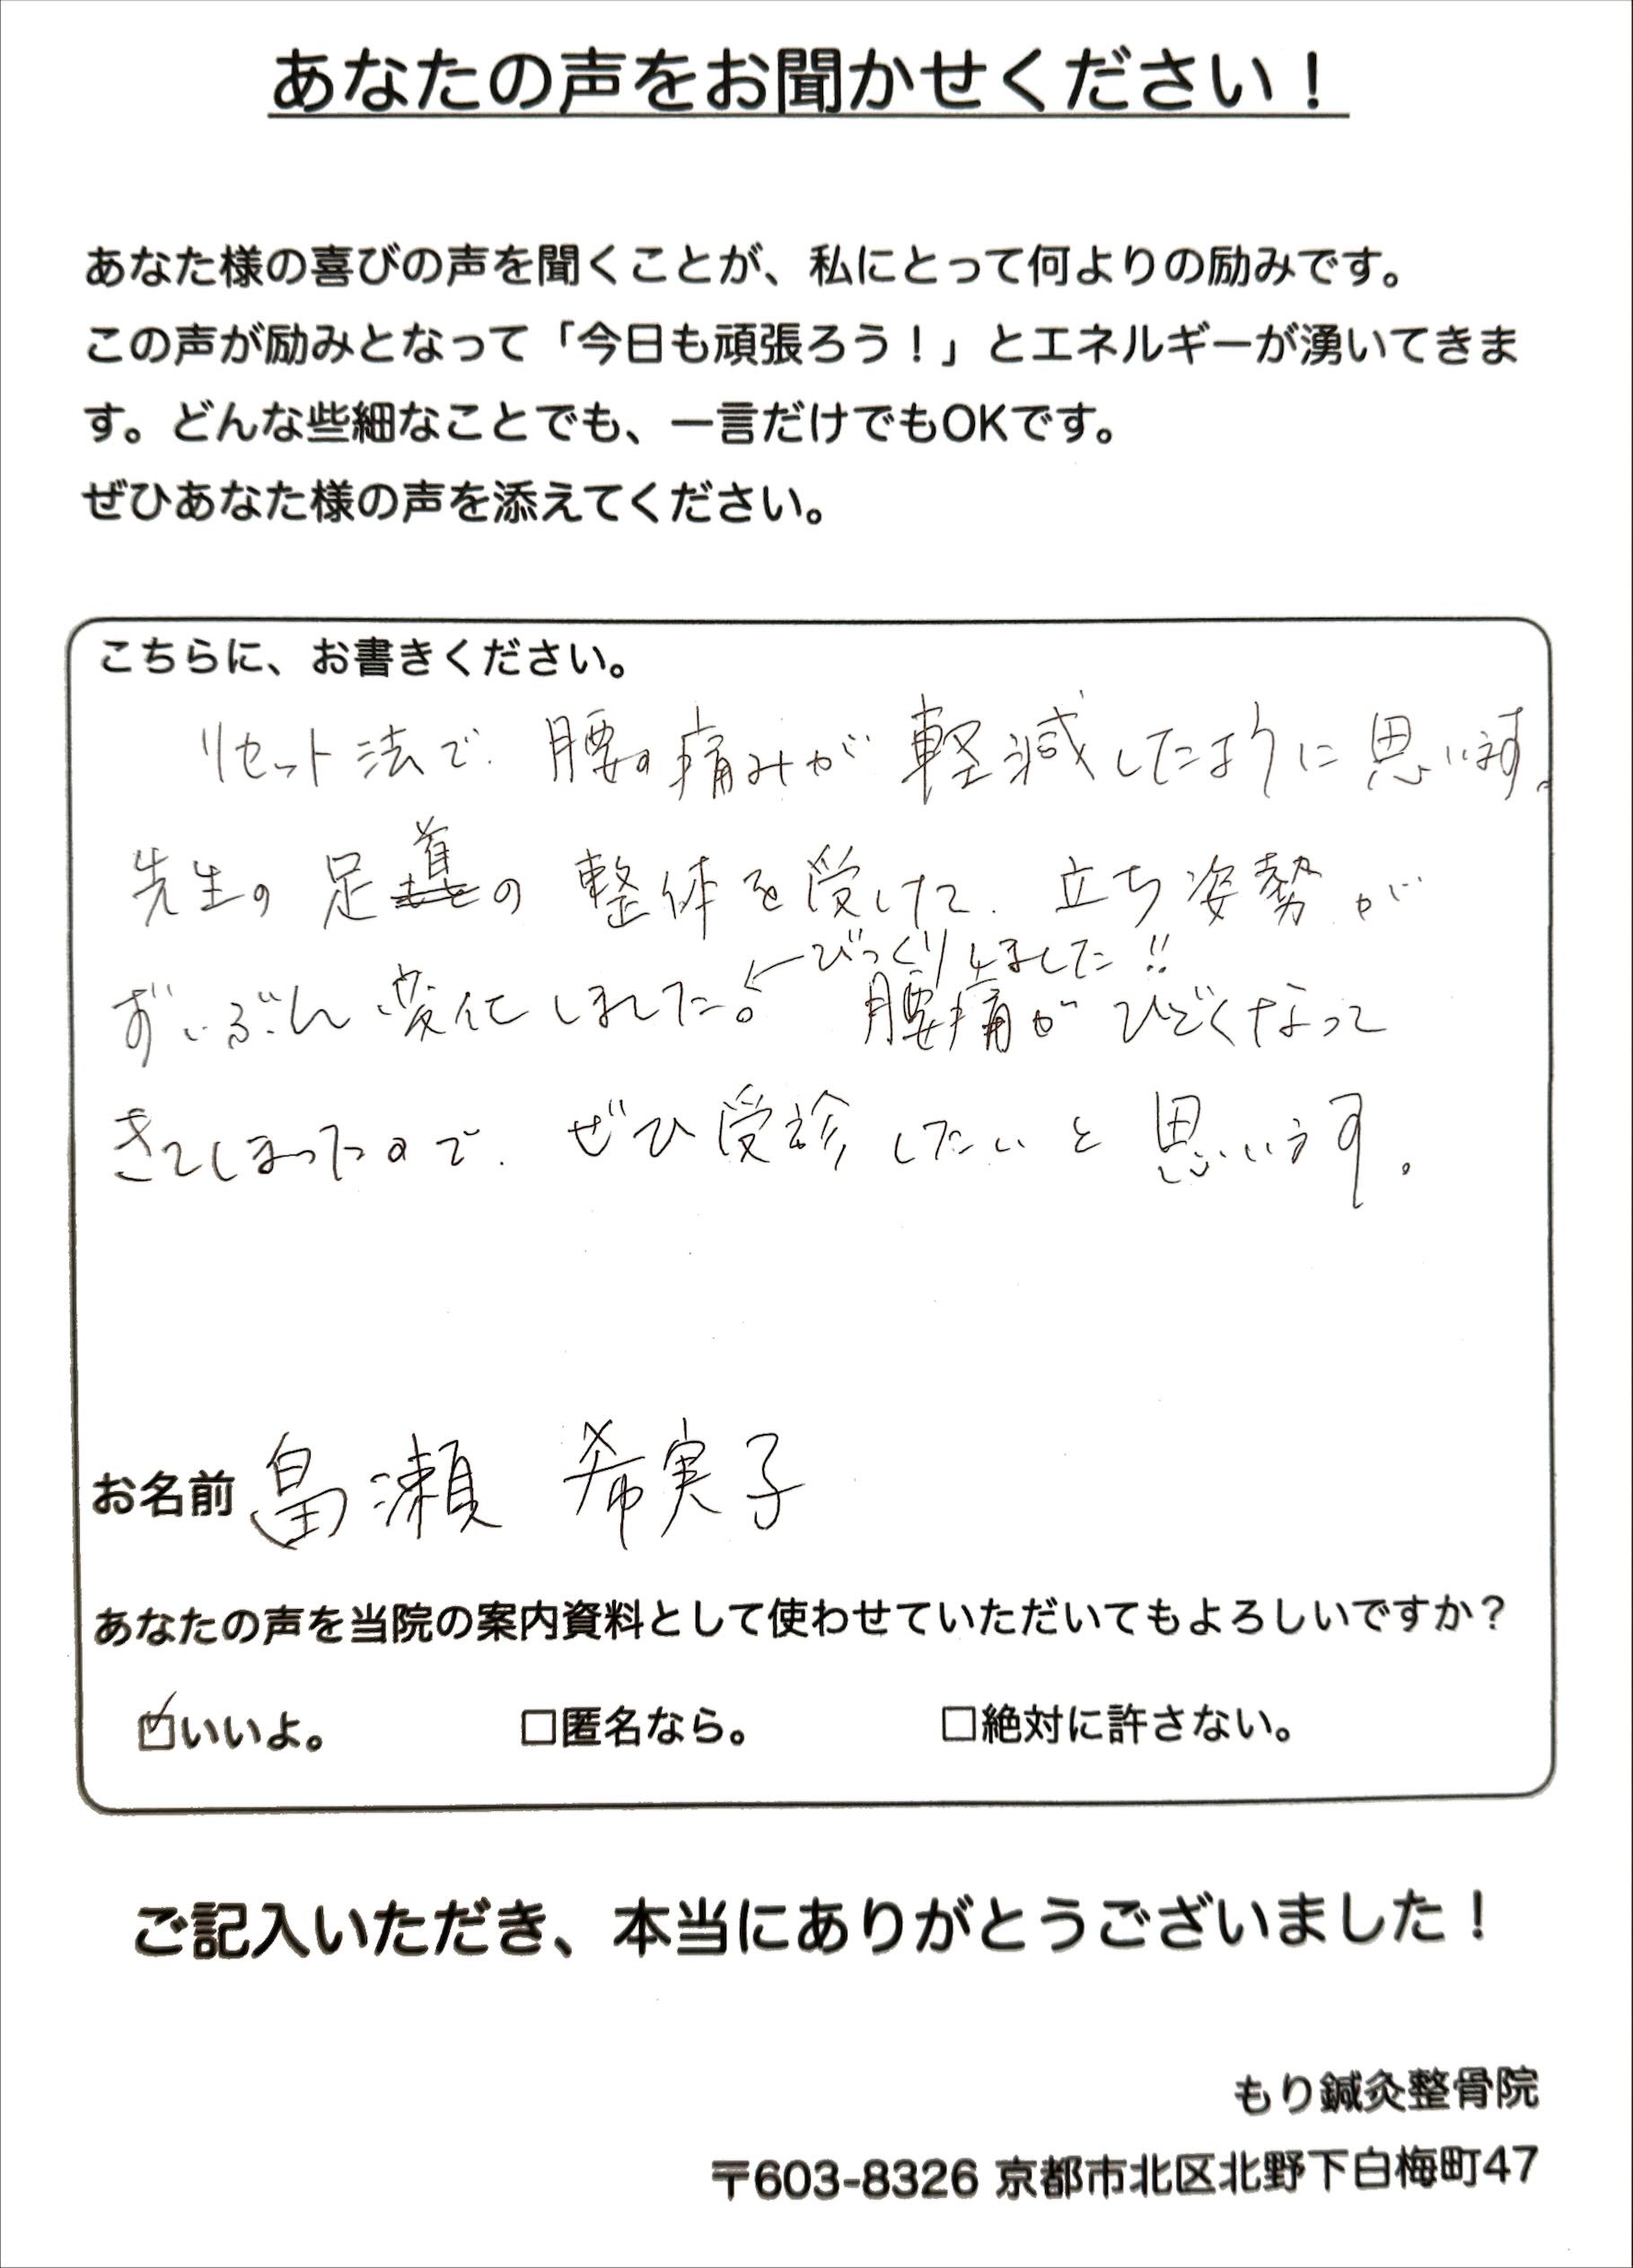 あなたの声をお聞かせください！
あなた様の喜びの声を聞くことが、私にとって何よりの励みです。
この声が励みとなって「今日も頑張ろう！」とエネルギーが湧いてきま
す。どんな些細なことでも、一言だけでもOKです。
ぜひあなた様の声を添えてください。
こちらに、お書きください。
リセット法で、腰の痛みが軽減したように思います。
先生の足の整体を受けて、立ち姿勢が
ずいぶん変化しました。←びっくりしました!!
腰痛がひどくなって
きてしまったので、ぜひ受診したいと思います。
お名前 畠瀬 希実子
あなたの声を当院の案内資料として使わせていただいてもよろしいですか？
☑いいよ。 □匿名なら。 □絶対に許さない。
ご記入いただき、本当にありがとうございました！
もり鍼灸整骨院
〒603-8326 京都市北区北野下白梅町47